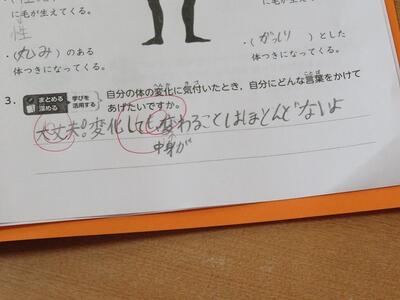 に毛が生えてくる。
に毛が生えてくる。
性
・(丸み)のある
体つきになってくる。
・(がっしり)とした
体つきになってくる。
3. まとめる 深める 学びを活用する 自分の体の変化に気付いたとき、自分にどんな言葉をかけて
あげたいですか。
大丈夫!変化しても、変わることはほとんどないよ
中身が